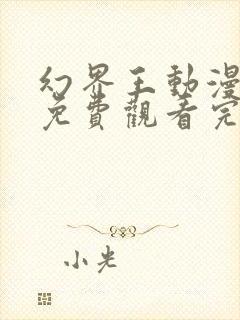 幻界王動漫
免費觀看完
小光